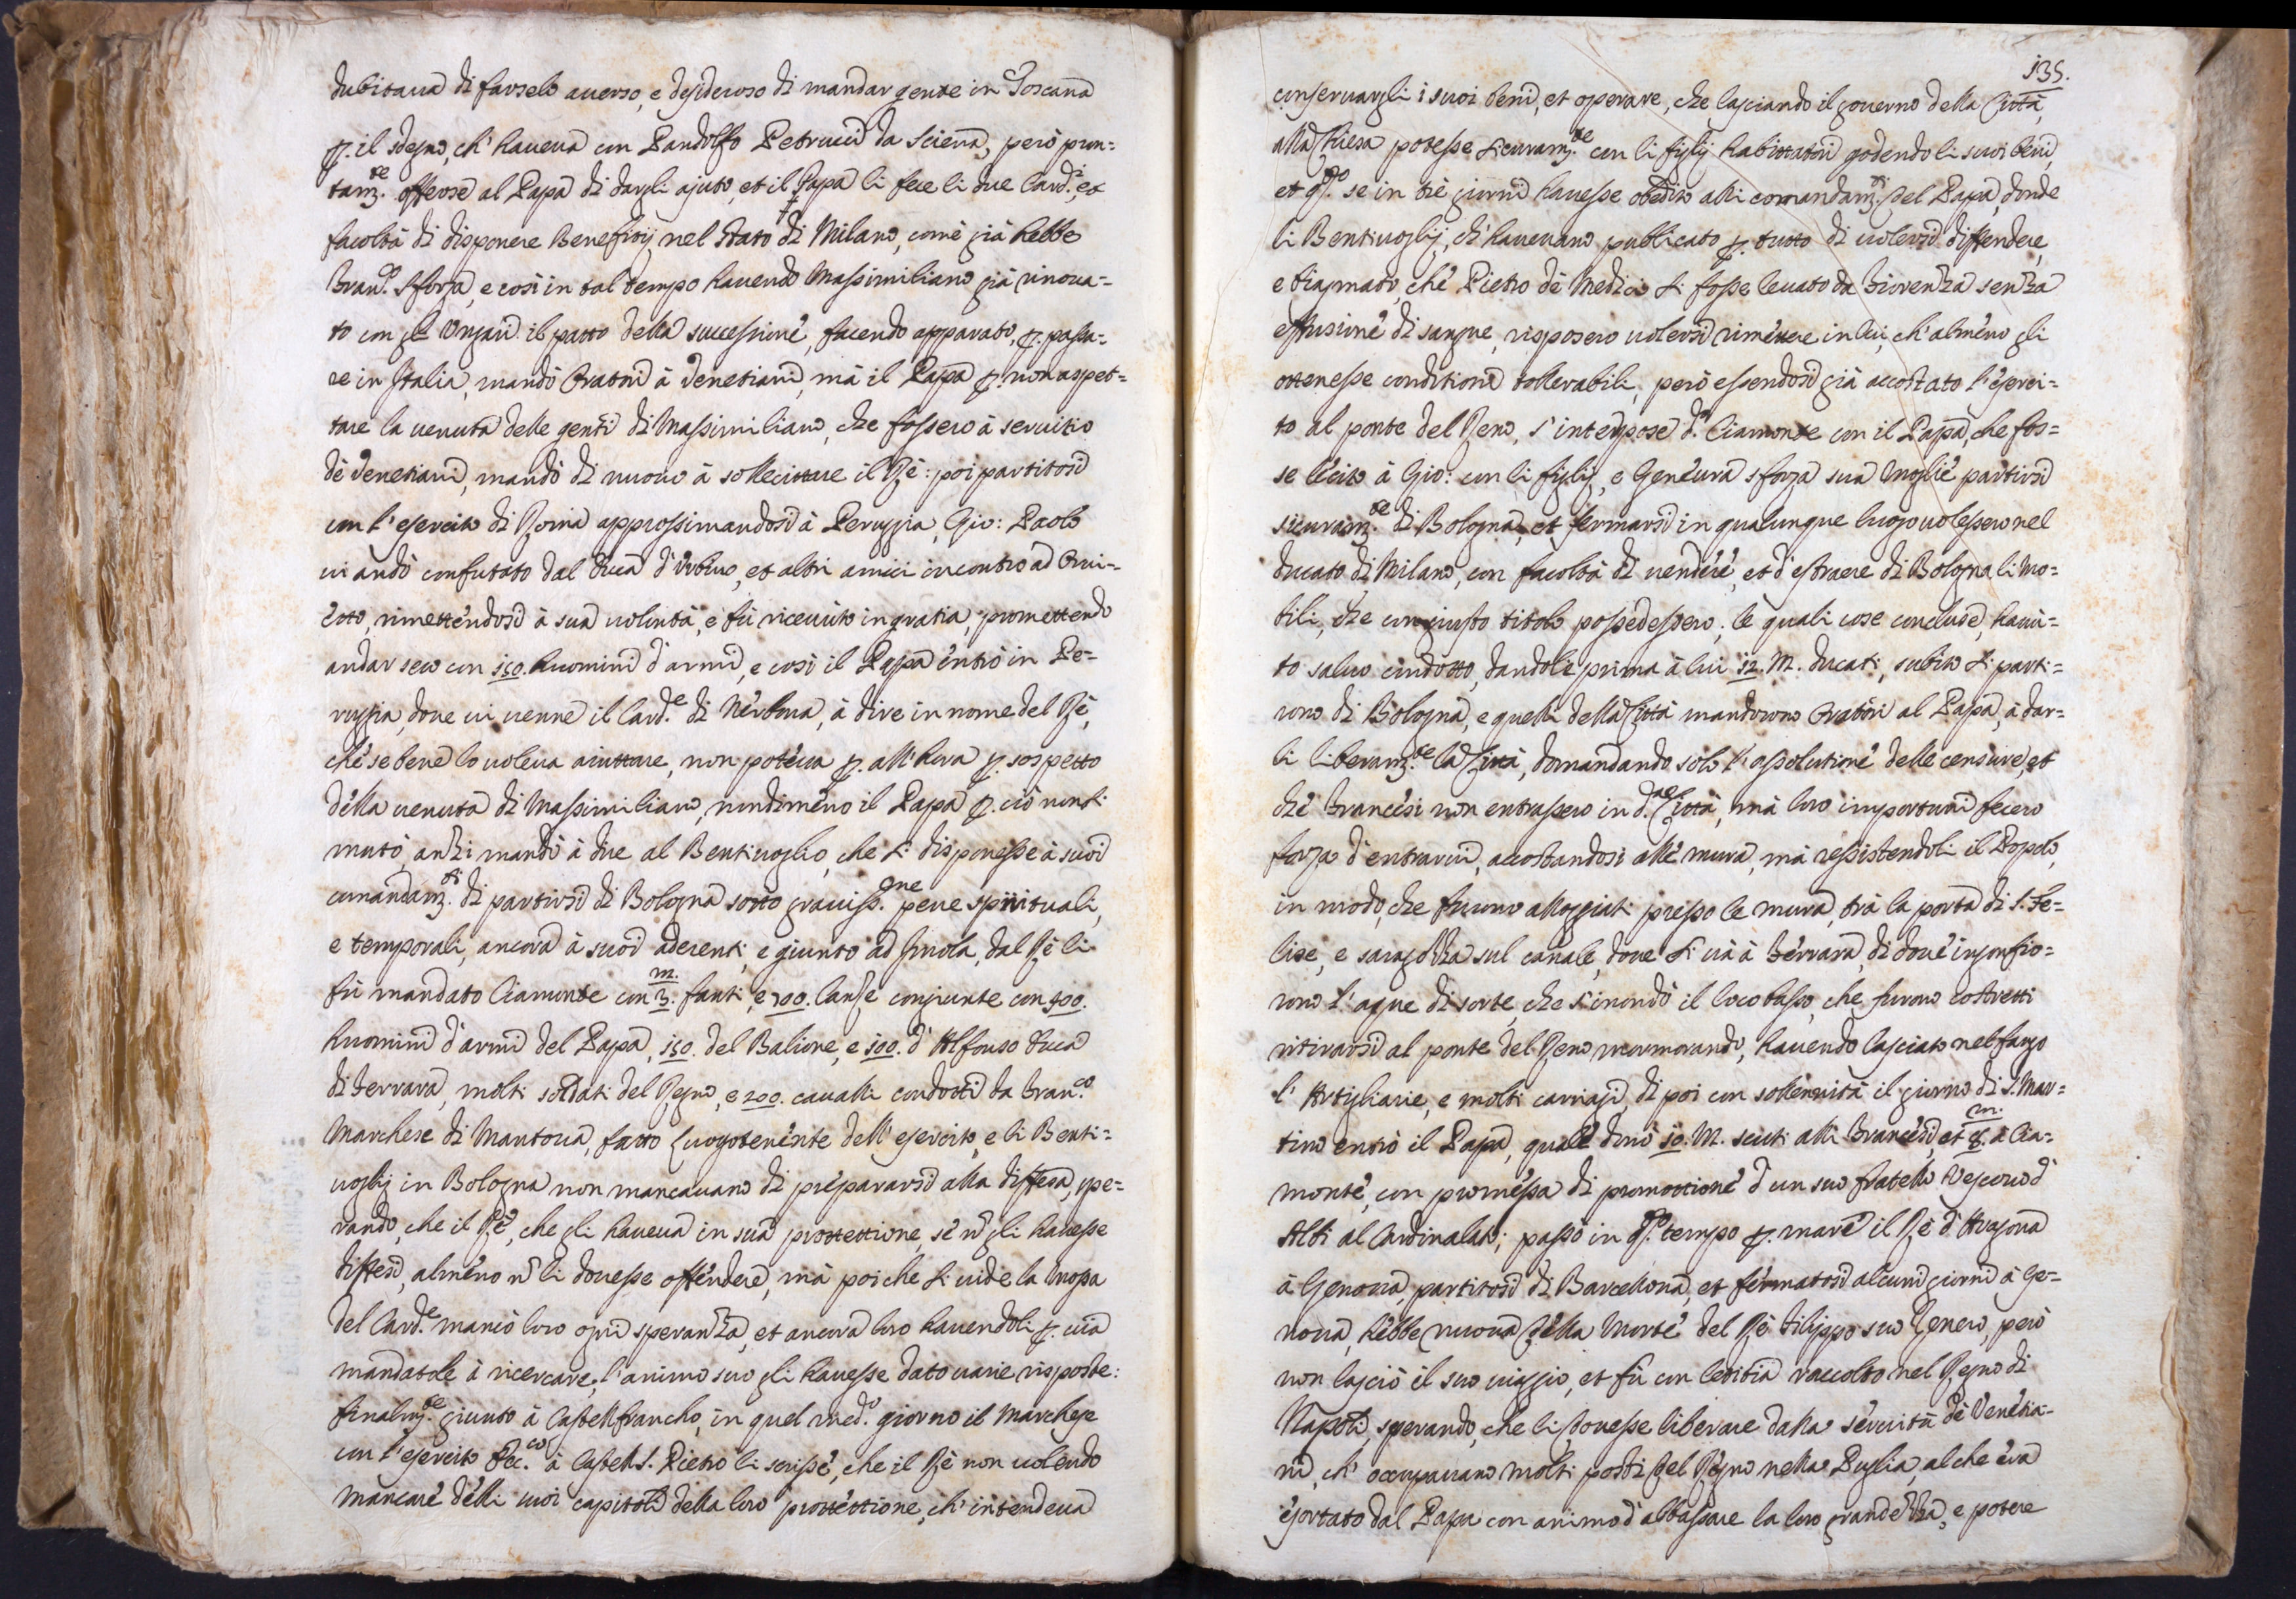 dubitaua di farselo auerso, e desideroso di mandar gente in Toscana
p. il sdegno, ch' haueua con Pandolfo Petrucci da Sciena, però pron=
tam.te offerse al Papa di dargli ajuto, et il Papa li fece li due Card.i, et
facoltà di disponere Beneficij nel Stato di Milano, come già hebbe
Fran.co Sforza, e così in tal tempo hauendo Massimiliano già rinoua=
to con gli Ongari il patto della successione, facendo apparato, p. passa=
re in Italia, mandò Oratori à Venetiani, mà il Papa p. non aspet=
tare la uenuta delle genti di Massimiliano, che fossero à seruitio
dè Venetiani, mandò di nuouo à sollecittare il Rè: poi partitosi
con l'esercito di Roma approssimandosi à Peruggia, Gio: Paolo
ui andò confutato dal Duca d'Urbino, et altri amici incontro ad Orui=
etto, rimettendosi à sua uolontà, e fù riceuuto in gratia, promettendo
andar seco con 150. huomini d'armi, e così il Papa entrò in Pe=
ruggia, doue ui uenne il Card.e di Nerbona, à dire in nome del Rè,
che se bene lo uoleua aiuttare, non poteua p. all'hora p. sospetto
della uenuta di Massimiliano, nondimeno il Papa p. ciò non si
mutò, anzi mandò à dire al Bentiuoglio, che si disponesse à suoi
comandam.ti di partirsi di Bologna sotto grauiss.me pene spirituali,
e temporali, ancora à suoi aderenti, e giunto ad Imola, dal Rè li
fù mandato Ciamonte con 3.m. fanti, e 700. lanze congiunte con 500.
huomini d'armi del Papa, 150. del Balione, e 100. d'Alfonso Duca
di Ferrara, molti soldati del Regno, e 200. caualli condotti da Fran.co
Marchese di Mantoua, fatto Luogotenente dell'esercito, e li Benti=
uoglij in Bologna non mancauano di prepararsi alla diffesa, spe=
rando, che il Rè, che gli haueua in sua prottettione, se ñ gli hauesse
diffesi, almeno ñ li douesse offendere, mà poi che si uide la mossa
del Card.e mancò loro ogni speranza, et ancora loro hauendoli p. uia
mandatole à ricercare, l'animo suo gli hauesse dato uarie risposte:
finalm.te giunto à Castelfrancho, in quel med.o giorno il Marchese
con l'esercito Ecc.co à Castel S. Pietro li scrisse, che il Rè non uolendo
mancare delli suoi capitoli della loro prottettione, ch' intendeua
135.
conseruargli i suoi beni, et operare, che lasciando il gouerno della Città,
alla Chiesa potesse sicuram.te con li figlij habittatori godendo li suoi beni,
et q.to se in tre giorni hauesse obedito alli comandam.ti del Papa, donde
li Bentiuoglij, ch' haueuano publicato p. tutto di uolersi diffendere,
e biasmato, che Pietro dè Medici si fosse leuato da Fiorenza senza
effusione di sangue, risposero uolersi rimettere in lui, ch' almeno gli
ottenesse conditioni tollerabili, però essendosi già accostato l'eserci=
to al ponte del Reno, s'interpose d.o Ciamonte con il Papa, che fos=
se lecito à Gio: con li figlij, e Geneura Sforza sua Moglie partirsi
sicuram.te di Bologna, et fermarsi in qualunque luogo uolessero nel
ducato di Milano, con facoltà di uendere, et d'estraere di Bologna li mo=
bili, che con giusto titolo possedessero, le quali cose concluse, hauu=
to saluo condotto, dandole prima à lui 12. M. ducati, subito si parti=
rono di Bologna, e quelli della Città mandorono Oratori al Papa, à dar=
li liberam.te la Città, domandando solo l'assolutione delle censure, et
che Francesi non entrassero in d.a Città, mà loro importuni fecero
forza d'entrarui, accostandosi alle mura, mà ressistendoli il Popolo,
in modo, che furono alloggiati presso le mura, trà la porta di S. Fe=
lice, e saragozza sul canale, doue si uà à Ferrara, di doue ingonfio=
rono l'aque di sorte, che s'inondò il loco basso, che furono costretti
ritirarsi al ponte del Reno mormorando, hauendo lasciato nel fango
l'Artigliarie, e molti carriaggi, di poi con sollennità il giorno di S. Mar=
tino entrò il Papa, quale donò 10. M. scuti alli Francesi, et 8.m. à Cia=
monte, con promessa di promottione d'un suo fratello Vescouo d'
Albi al Cardinalato; passò in q.to tempo p. mare il Rè d'Aragona
à Genoua, partitosi di Barcellona, et fermatosi alcuni giorni à Ge=
noua, hebbe nuoua della Morte del Rè Filippo suo Genero, però
non lasciò il suo uiaggio, et fù con letitia raccolto nel Regno di
Napoli, sperando, che li douesse liberare dalla seruitù dè Venetia=
ni, ch' occupauano molti posti del Regno nella Puglia, al che era
esortato dal Papa con animo d'abbassare la loro grandezza, e potere